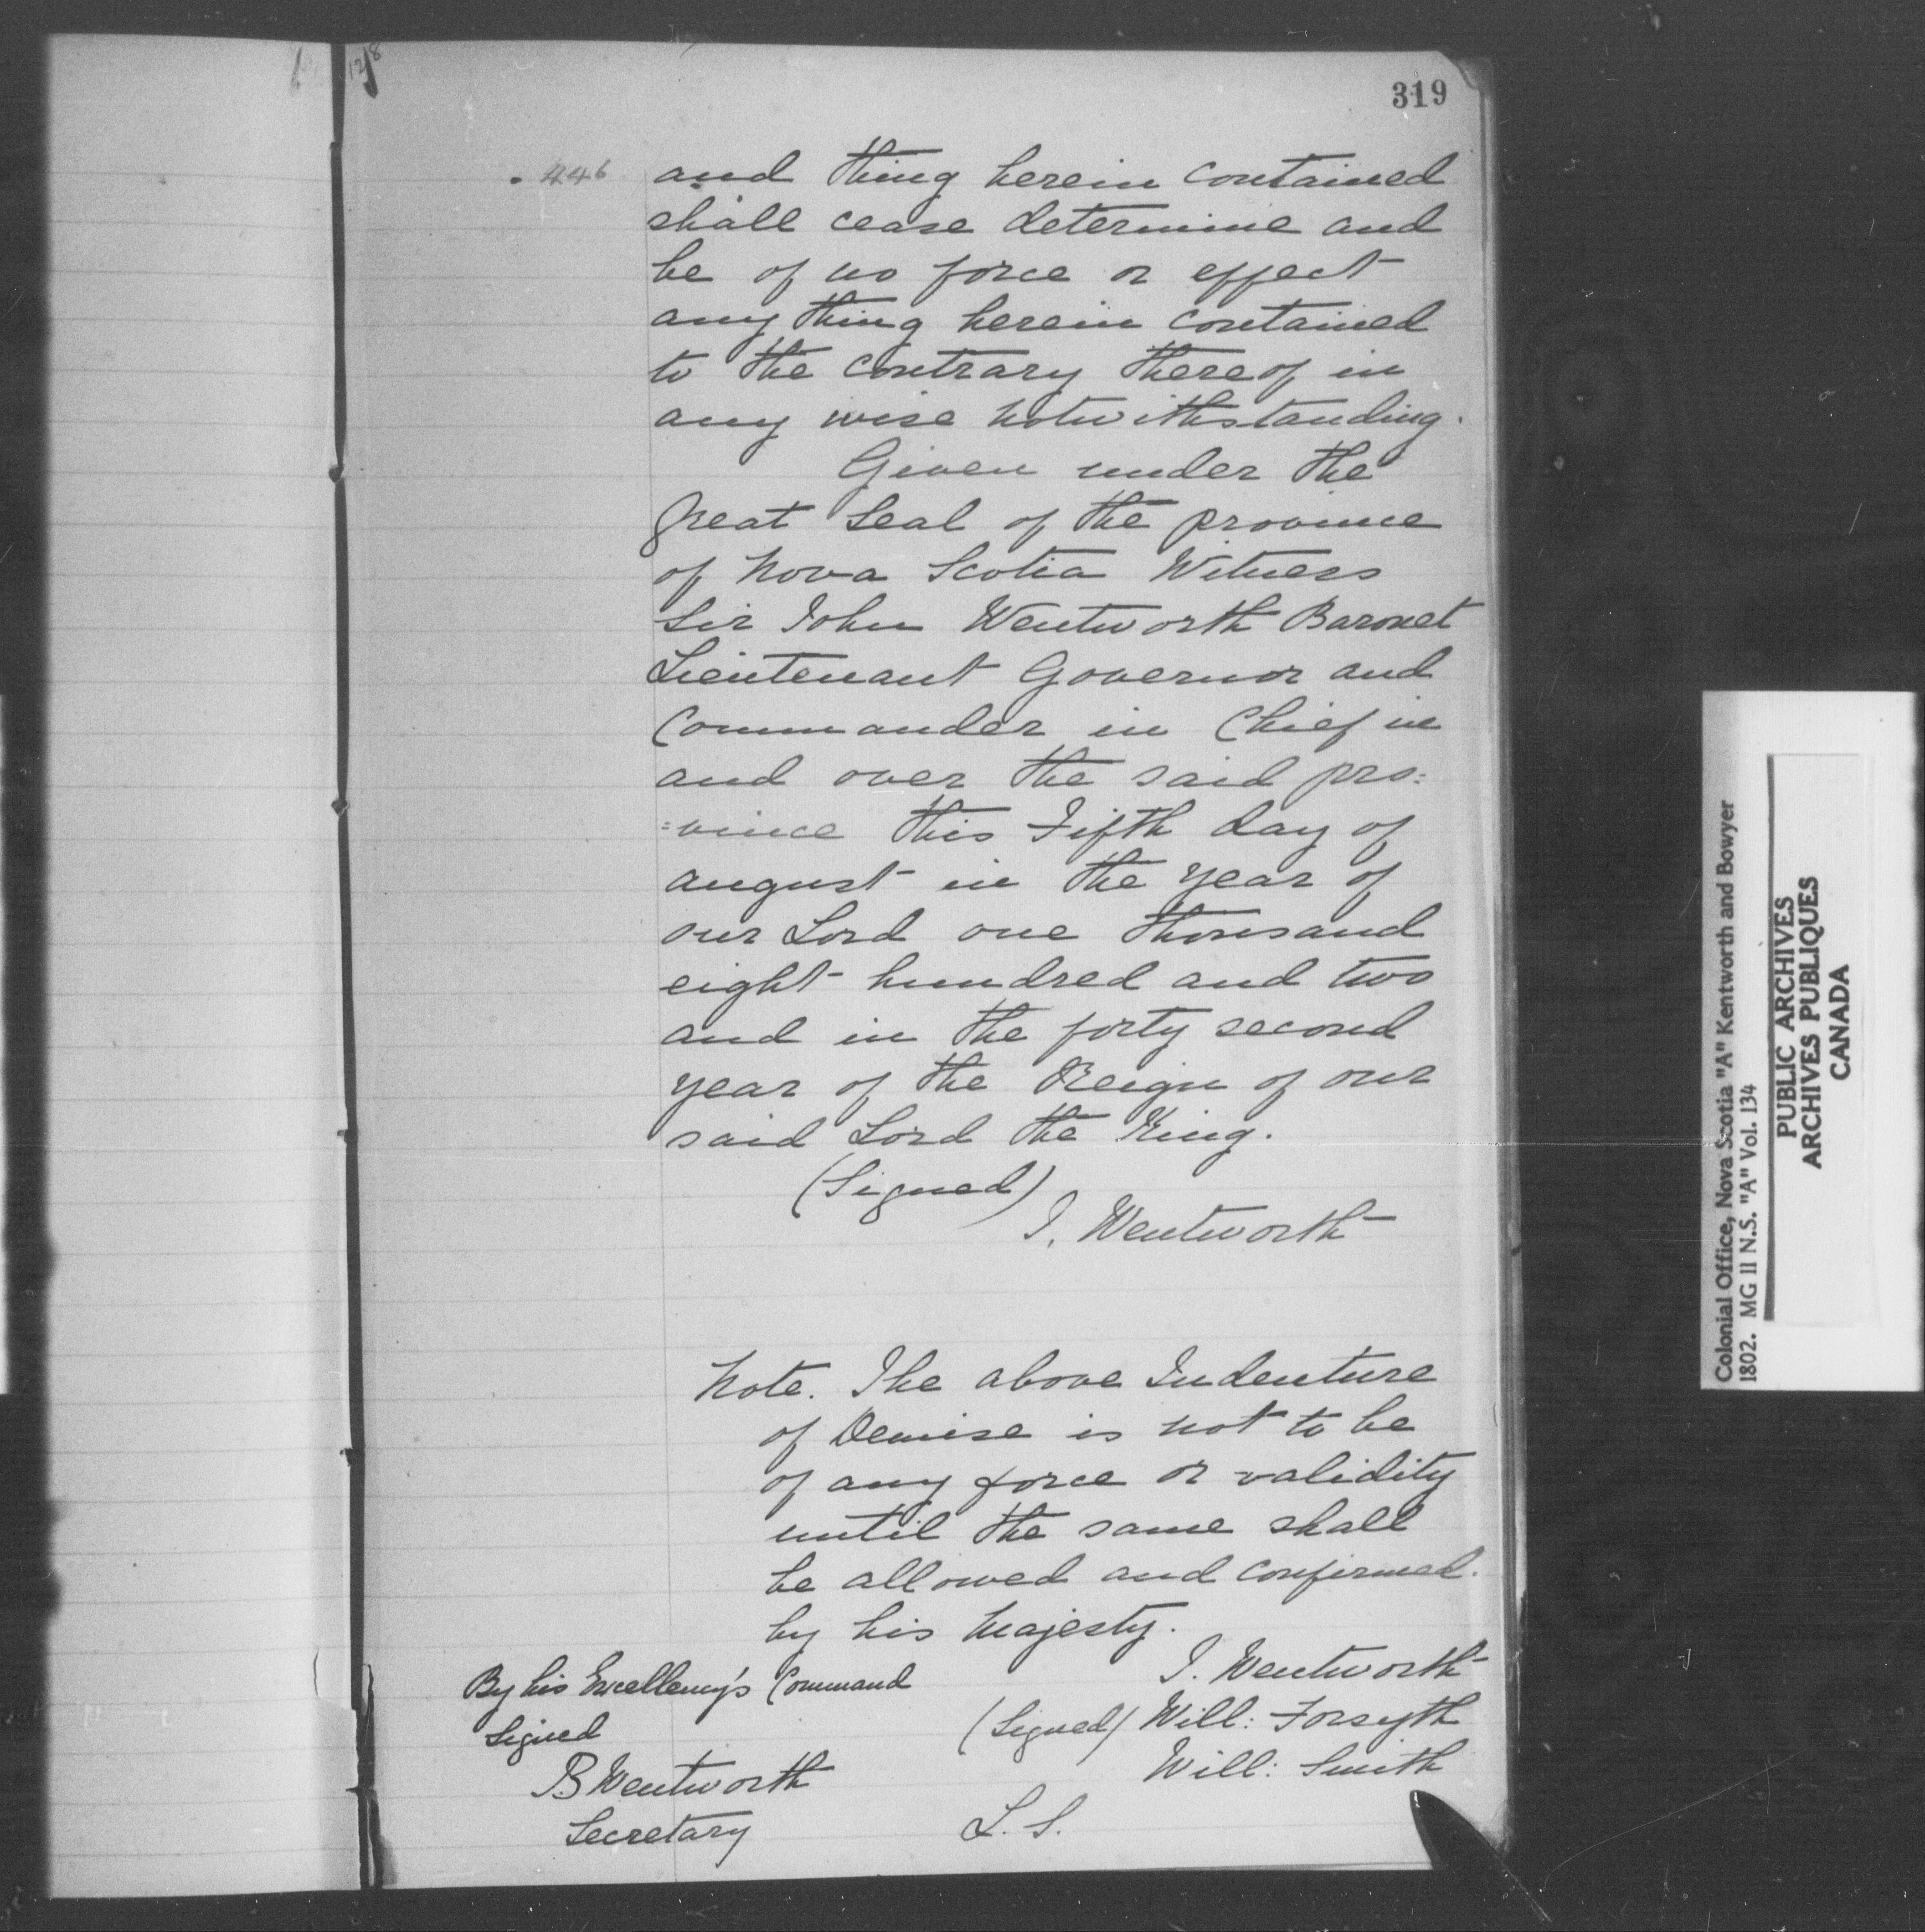 319
446
and thing herein contained
shall cease determine and
be of no force or effect
any thing herein contained
to the contrary thereof in
any wise notwithstanding.
Given under the
Great Seal of the province
of Nova Scotia Witness
Sir John Wentworth Baronet
Lieutenant Governor and
Commander in Chief in
and over the said pro:
:vince this Fifth day of
august in the year of
our Lord one thousand
eight hundred and two
and in the forty second
year of the Reign of our
said Lord the King.
(Signed)
J. Wentworth
Note. The above Indenture
of Demise is not to be
of any force or validity
until the same shall
be allowed and confirmed.
by his Majesty.
J. Wentworth
By his Excellency's Command
(Signed) Will: Forsyth
Signed
Will: Smith
B Wentworth
Secretary
L. S.
Colonial Office, Nova Scotia "A" Kentworth and Bowyer
1802. MG 11 N.S. "A" Vol. 134
PUBLIC ARCHIVES
ARCHIVES PUBLIQUES
CANADA